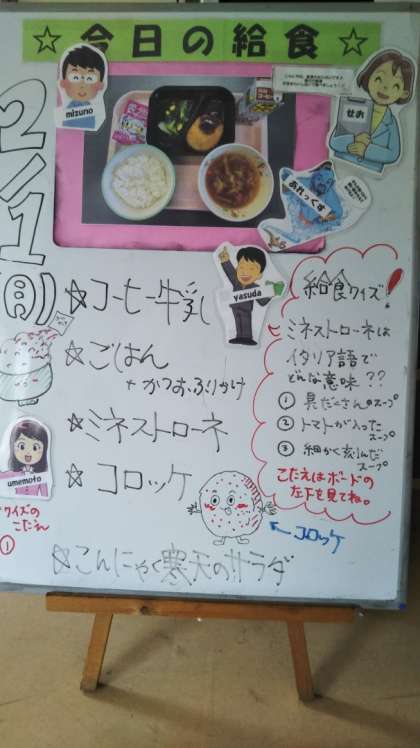 ☆今日の給食☆
mizuno
せお
おれっくす
2/1
(月)
☆コーヒー牛乳
yasuda
☆ごはん
+かつおふりかけ
☆ミネストローネ
☆コロッケ
umemoto
クイズの
こたえ
①
←コロッケ
☆こんにゃく寒天のサラダ
給食クイズ!
ミネストローネは
イタリア語で
どんな意味??
① 具だくさんのスープ
② トマトが入った
スープ
③ 細かく刻んだ
スープ
こたえはボードの
左下を見てね。